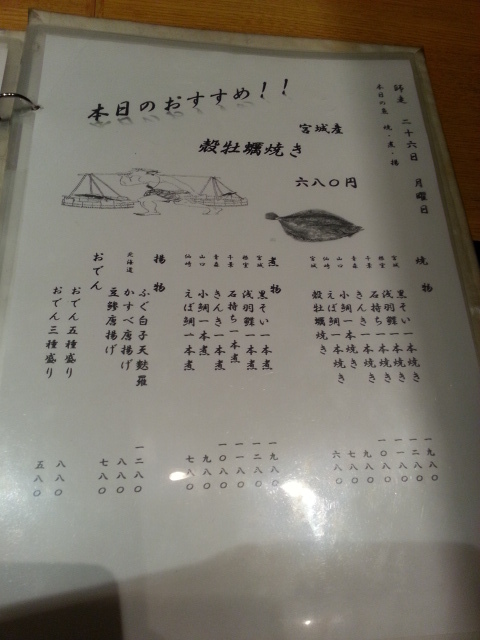 師走 二十六日 月曜日
本日の魚 焼・煮・揚
本日のおすすめ！！
宮城産
殻牡蠣焼き
六八〇円
焼物
宮城 黒そい一本焼き 一九八〇
根室 浅羽鰈一本焼き 一二八〇
千葉 石持ち一本焼き 一一八〇
青森 きんき一本焼き 一〇八〇
山口 小鯛一本焼き 九八〇
仙崎 えぼ鯛一本焼き 七八〇
宮城 殻牡蠣焼き 六八〇
煮物
宮城 黒そい一本煮 一九八〇
根室 浅羽鰈一本煮 一二八〇
千葉 石持ち一本煮 一一八〇
青森 きんき一本煮 一〇八〇
山口 小鯛一本煮 九八〇
仙崎 えぼ鯛一本煮 七八〇
揚物
ふぐ白子天麩羅 一二八〇
北海道 かすべ唐揚げ 八八〇
豆鯵唐揚げ 七八〇
おでん
おでん五種盛り 八八〇
おでん三種盛り 五八〇